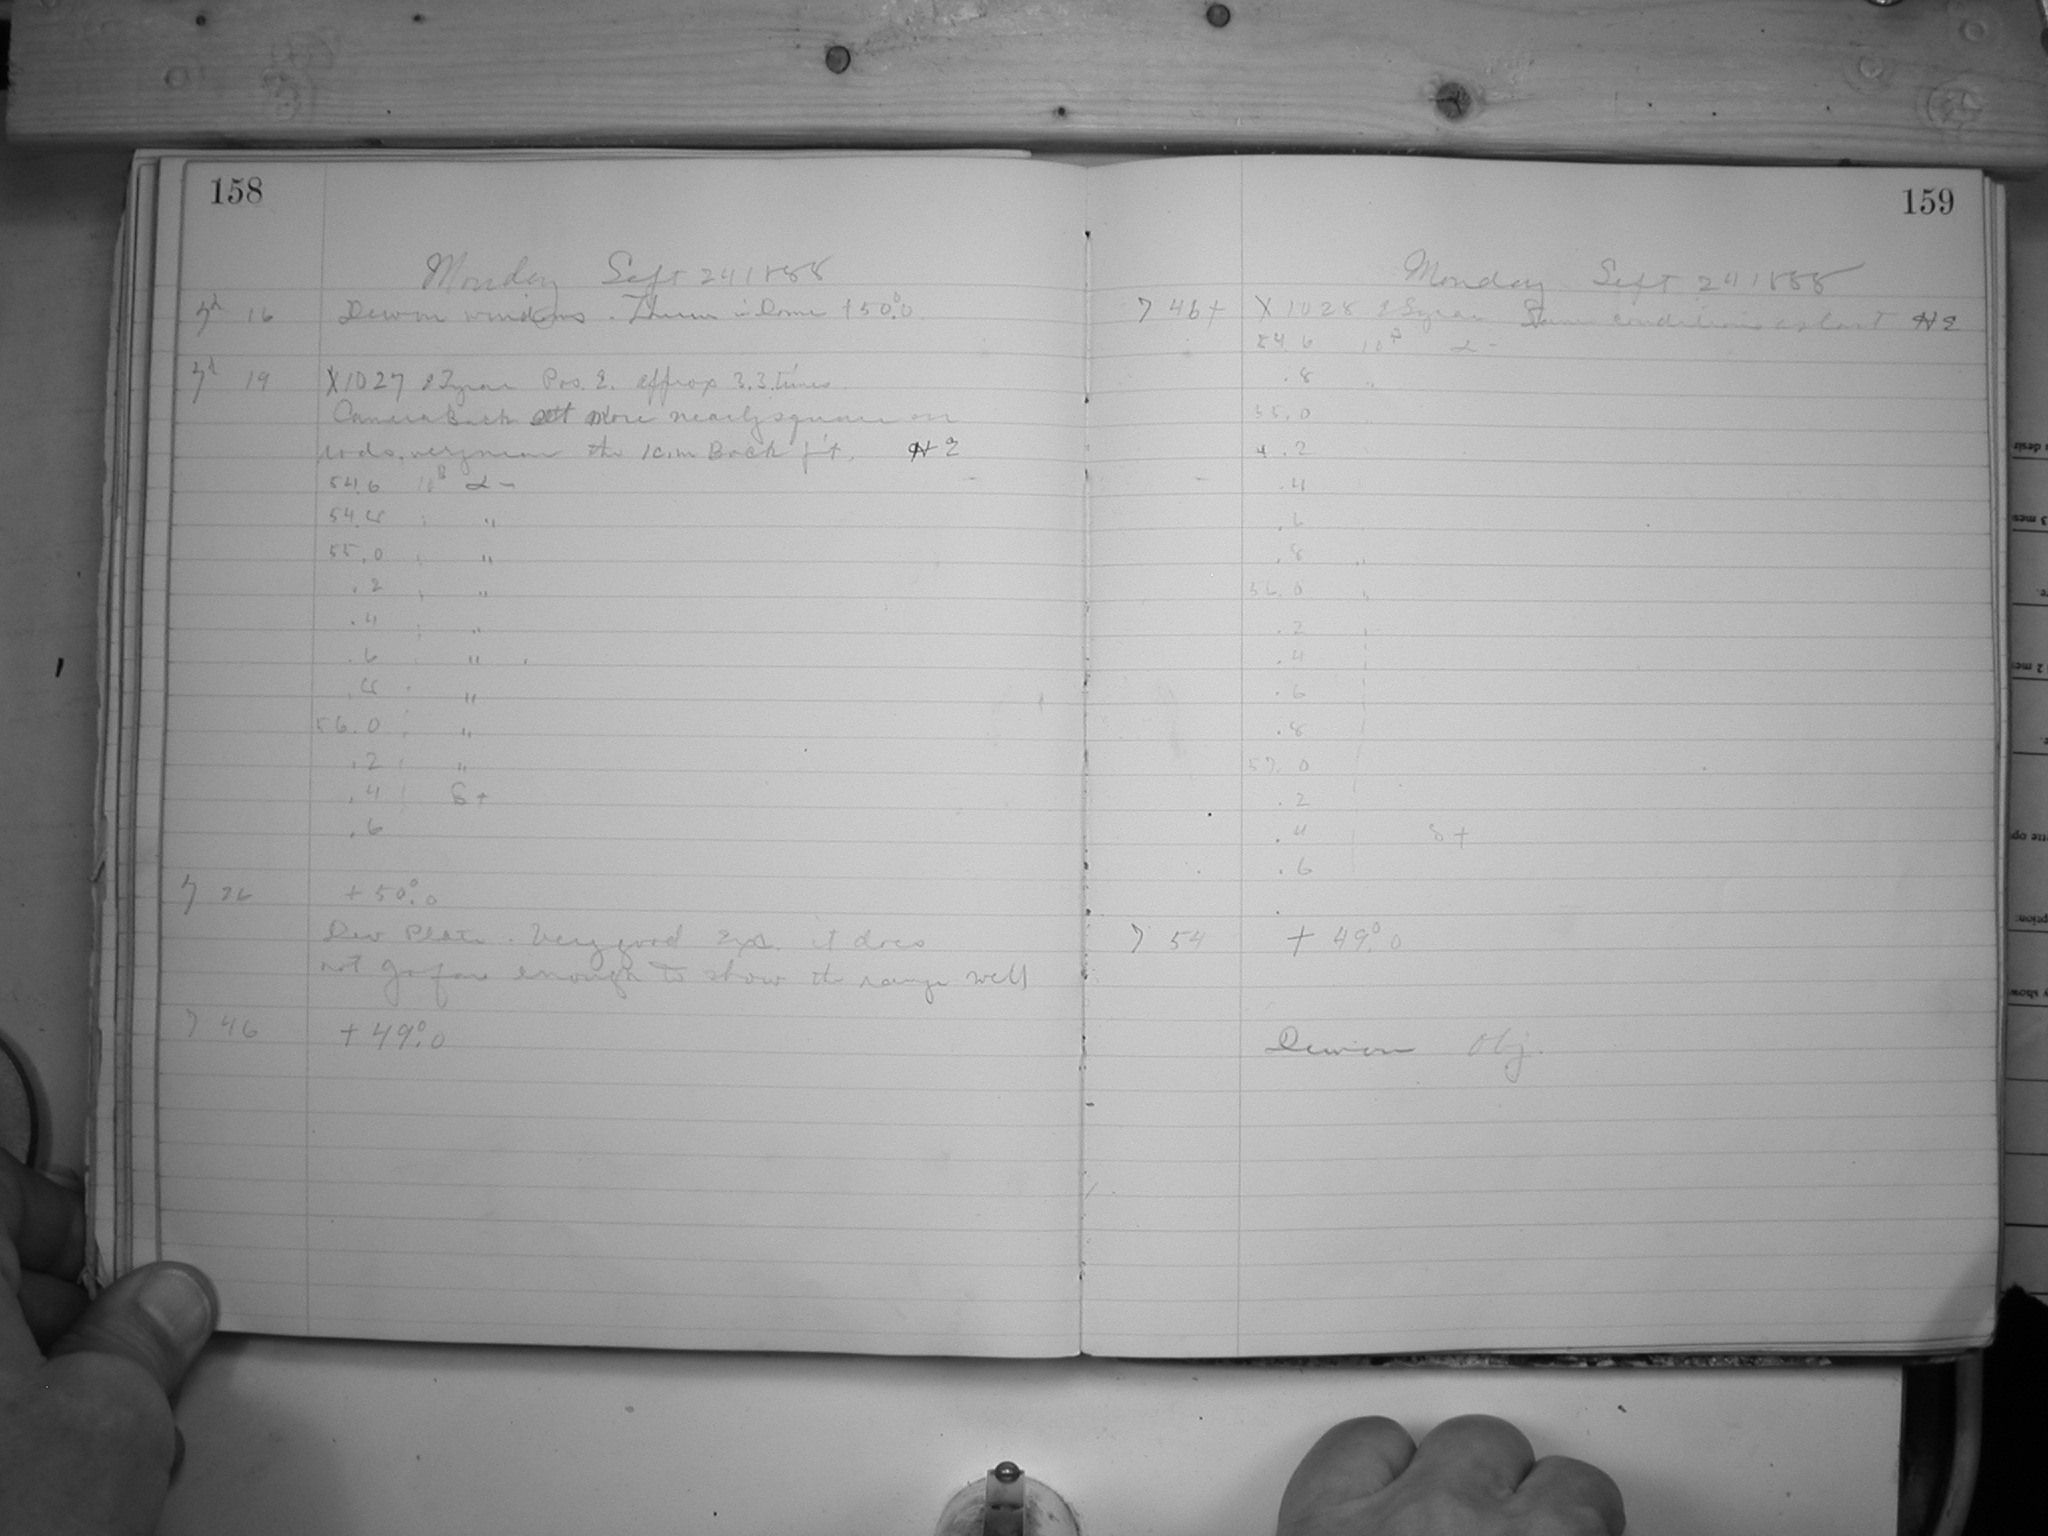 158
Monday Sept 24 1888
7h 16 Dew on windows. Therm in Dome +50°.0
7h 19 X1027 Pos. E. approx 3.3 times.
Camera Back set more nearly square on
rods. very near the 1cm Back pt.
54.6 10s α -
54.8 " "
55.0 " "
.2 " "
.4 " "
.6 " "
.8 " "
56.0 " "
.2 " "
.4 δ+
.6
7 26 +50°.0
Dev Plate. Very good Exp. it does
not go far enough to show the range well
7 46 +49°.0
159
Monday Sept 24 1888
7 46+ X1028 Same conditions as last
54.6 10s α -
.8 "
55.0
.2
.4
.6
.8 "
56.0 "
.2
.4
.6
.8
57.0
.2
.4 δ+
.6
7 54 +49°.0
Dew on Obj.